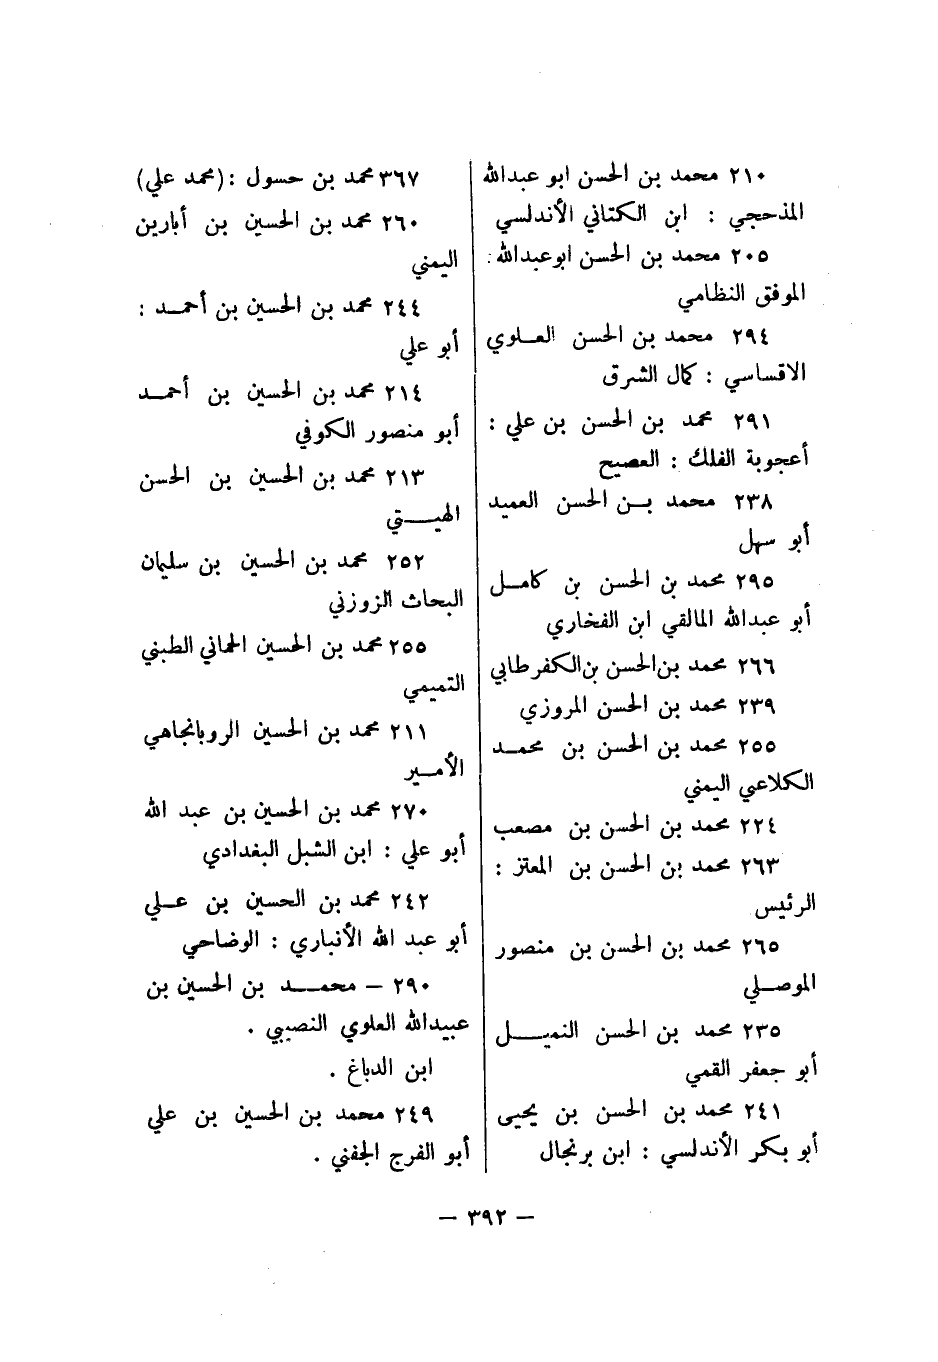 ٢١٠ محمد بن الحسن ابو عبدالله
المذحجي : ابن الكتاني الأندلسي
٢٠٥ محمد بن الحسن ابوعبدالله .
الموفق النظامي
٢٩٤ محمد بن الحسن العلوي
الاقساسي : كمال الشرق
٢٩١ محمد بن الحسن بن علي :
أعجوبة الفلك : العصيح
٢٣٨ محمد بن الحسن العميد
أبو سهل
٢٩٥ محمد بن الحسن بن كامل
أبو عبدالله المالقي ابن الفخاري
٢٦٦ محمد بن الحسن بن الكفرطابي
٢٣٩ محمد بن الحسن المروزي
٢٥٥ محمد بن الحسن بن محمد
الكلاعي اليمني
٢٢٤ محمد بن الحسن بن مصعب
٢٦٣ محمد بن الحسن بن المعتز :
الرئيس
٢٦٥ محمد بن الحسن بن منصور
الموصلي
٢٣٥ محمد بن الحسن النميل
أبو جعفر القمي
٢٤١ محمد بن الحسن بن يحيى
أبو بكر الأندلسي : ابن برنجال
٣٦٧ محمد بن حسول : (محمد علي)
٢٦٠ محمد بن الحسين بن أبارين
اليمني
٢٤٤ محمد بن الحسين بن أحمد :
أبو علي
٢١٤ محمد بن الحسين بن أحمد
أبو منصور الكوفي
٢١٣ محمد بن الحسين بن الحسن
الهيتي
٢٥٢ محمد بن الحسين بن سليمان
البحاث الزوزني
٢٥٥ محمد بن الحسين الحماني الطبني
التميمي
٢١١ محمد بن الحسين الروبانجاهي
الأمير
٢٧٠ محمد بن الحسين بن عبد الله
أبو علي : ابن الشبل البغدادي
٢٤٢ محمد بن الحسين بن علي
أبو عبد الله الأنباري : الوضاحي
٢٩٠ – محمد بن الحسين بن
عبيدالله العلوي النصيبي .
ابن الدباغ .
٢٤٩ محمد بن الحسين بن علي
أبو الفرج الجفني .
– ٣٩٢ –